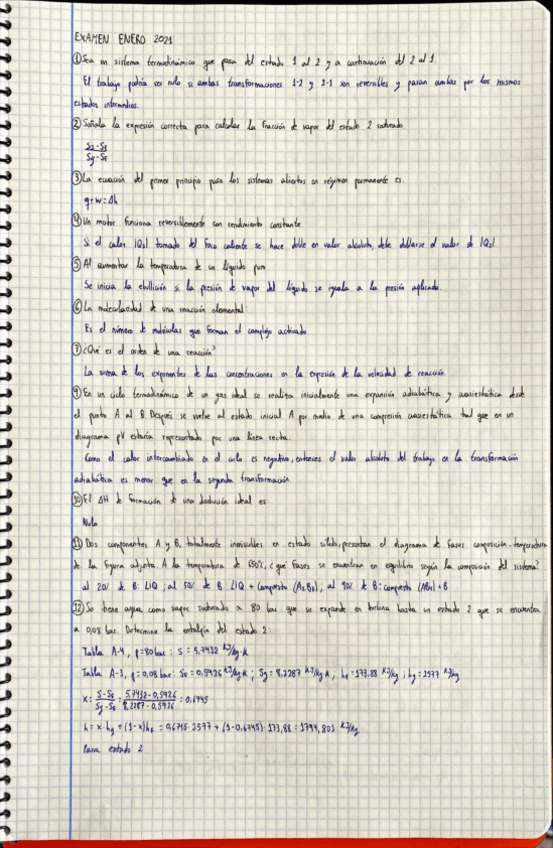 EXAMEN ENERO 2021
① Sea un sistema termodinámico que pasa del estado 1 al 2 y a continuación del 2 al 1.
El trabajo podría ser nulo si ambas transformaciones 1-2 y 2-1 son reversibles y pasan ambas por los mismos
estados intermedios.
② Señala la expresión correcta para calcular la fracción de vapor del estado 2 saturado
S2-Sf
Sg-Sf
③ La ecuación del primer principio para los sistemas abiertos en régimen permanente es.
q+w=Δh
④ Un motor funciona reversiblemente con rendimiento constante.
Si el calor |Q1| tomado del foco caliente se hace doble en valor absoluto, debe doblarse el valor de |Q2|.
⑤ Al aumentar la temperatura de un líquido puro
Se inicia la ebullición si la presión de vapor del líquido se iguala a la presión aplicada.
⑥ La molecularidad de una reacción elemental:
Es el número de moléculas que forman el complejo activado
⑦ ¿Qué es el orden de una reacción?
La suma de los exponentes de las concentraciones en la expresión de la velocidad de reacción.
⑨ En un ciclo termodinámico de un gas ideal se realiza inicialmente una expansión adiabática y cuasiestática desde
el punto A al B. Después se vuelve al estado inicial A por medio de una compresión cuasiestática tal que en un
diagrama pV estaría representado por una línea recta.
Como el calor intercambiado en el ciclo es negativo, entonces el valor absoluto del trabajo en la transformación
adiabática es menor que en la segunda transformación.
⑩ El ΔH de formación de una disolución ideal es
Nulo
⑪ Dos componentes A y B, totalmente inmiscibles en estado sólido, presentan el diagrama de fases composición-temperatura
de la figura adjunta. A la temperatura de 650°C, ¿qué fases se encuentran en equilibrio según la composición del sistema?
al 20% de B: LIQ; al 50% de B: LIQ + Compuesto (A2B3); al 90% de B: compuesto (AB4)+B
⑫ Se tiene agua como vapor saturado a 80 bar que se expande en turbina hasta un estado 2 que se encuentra
a 0,08 bar. Determine la entalpía del estado 2:
Tabla A-4, p=80bar: S = 5,7432 KJ/kg·K
Tabla A-3, p=0,08bar: Sf = 0,5926 KJ/kg·K; Sg = 8,2287 KJ/kg·K; hf = 173.88 KJ/kg; hg = 2577 KJ/kg
x = S-Sf / Sg-Sf = 5,7432-0,5926 / 8,2287-0,5926 = 0,6745
h = x·hg + (1-x)hf = 0,6745·2577 + (1-0,6745)·173,88 = 1794,801 KJ/kg
Para estado 2